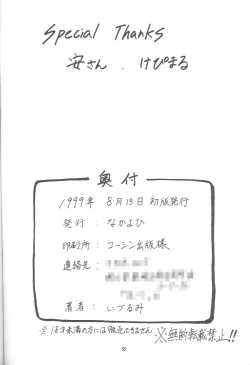 Special Thanks
安さん . けぴまる
奥付
1999年 8月15日 初版発行
発行 : なかよひ
印刷所 : コーシン出版様
連絡先 :
著者 : いづるみ
※ 18才未満の方には販売できません ※無断転載禁止!!